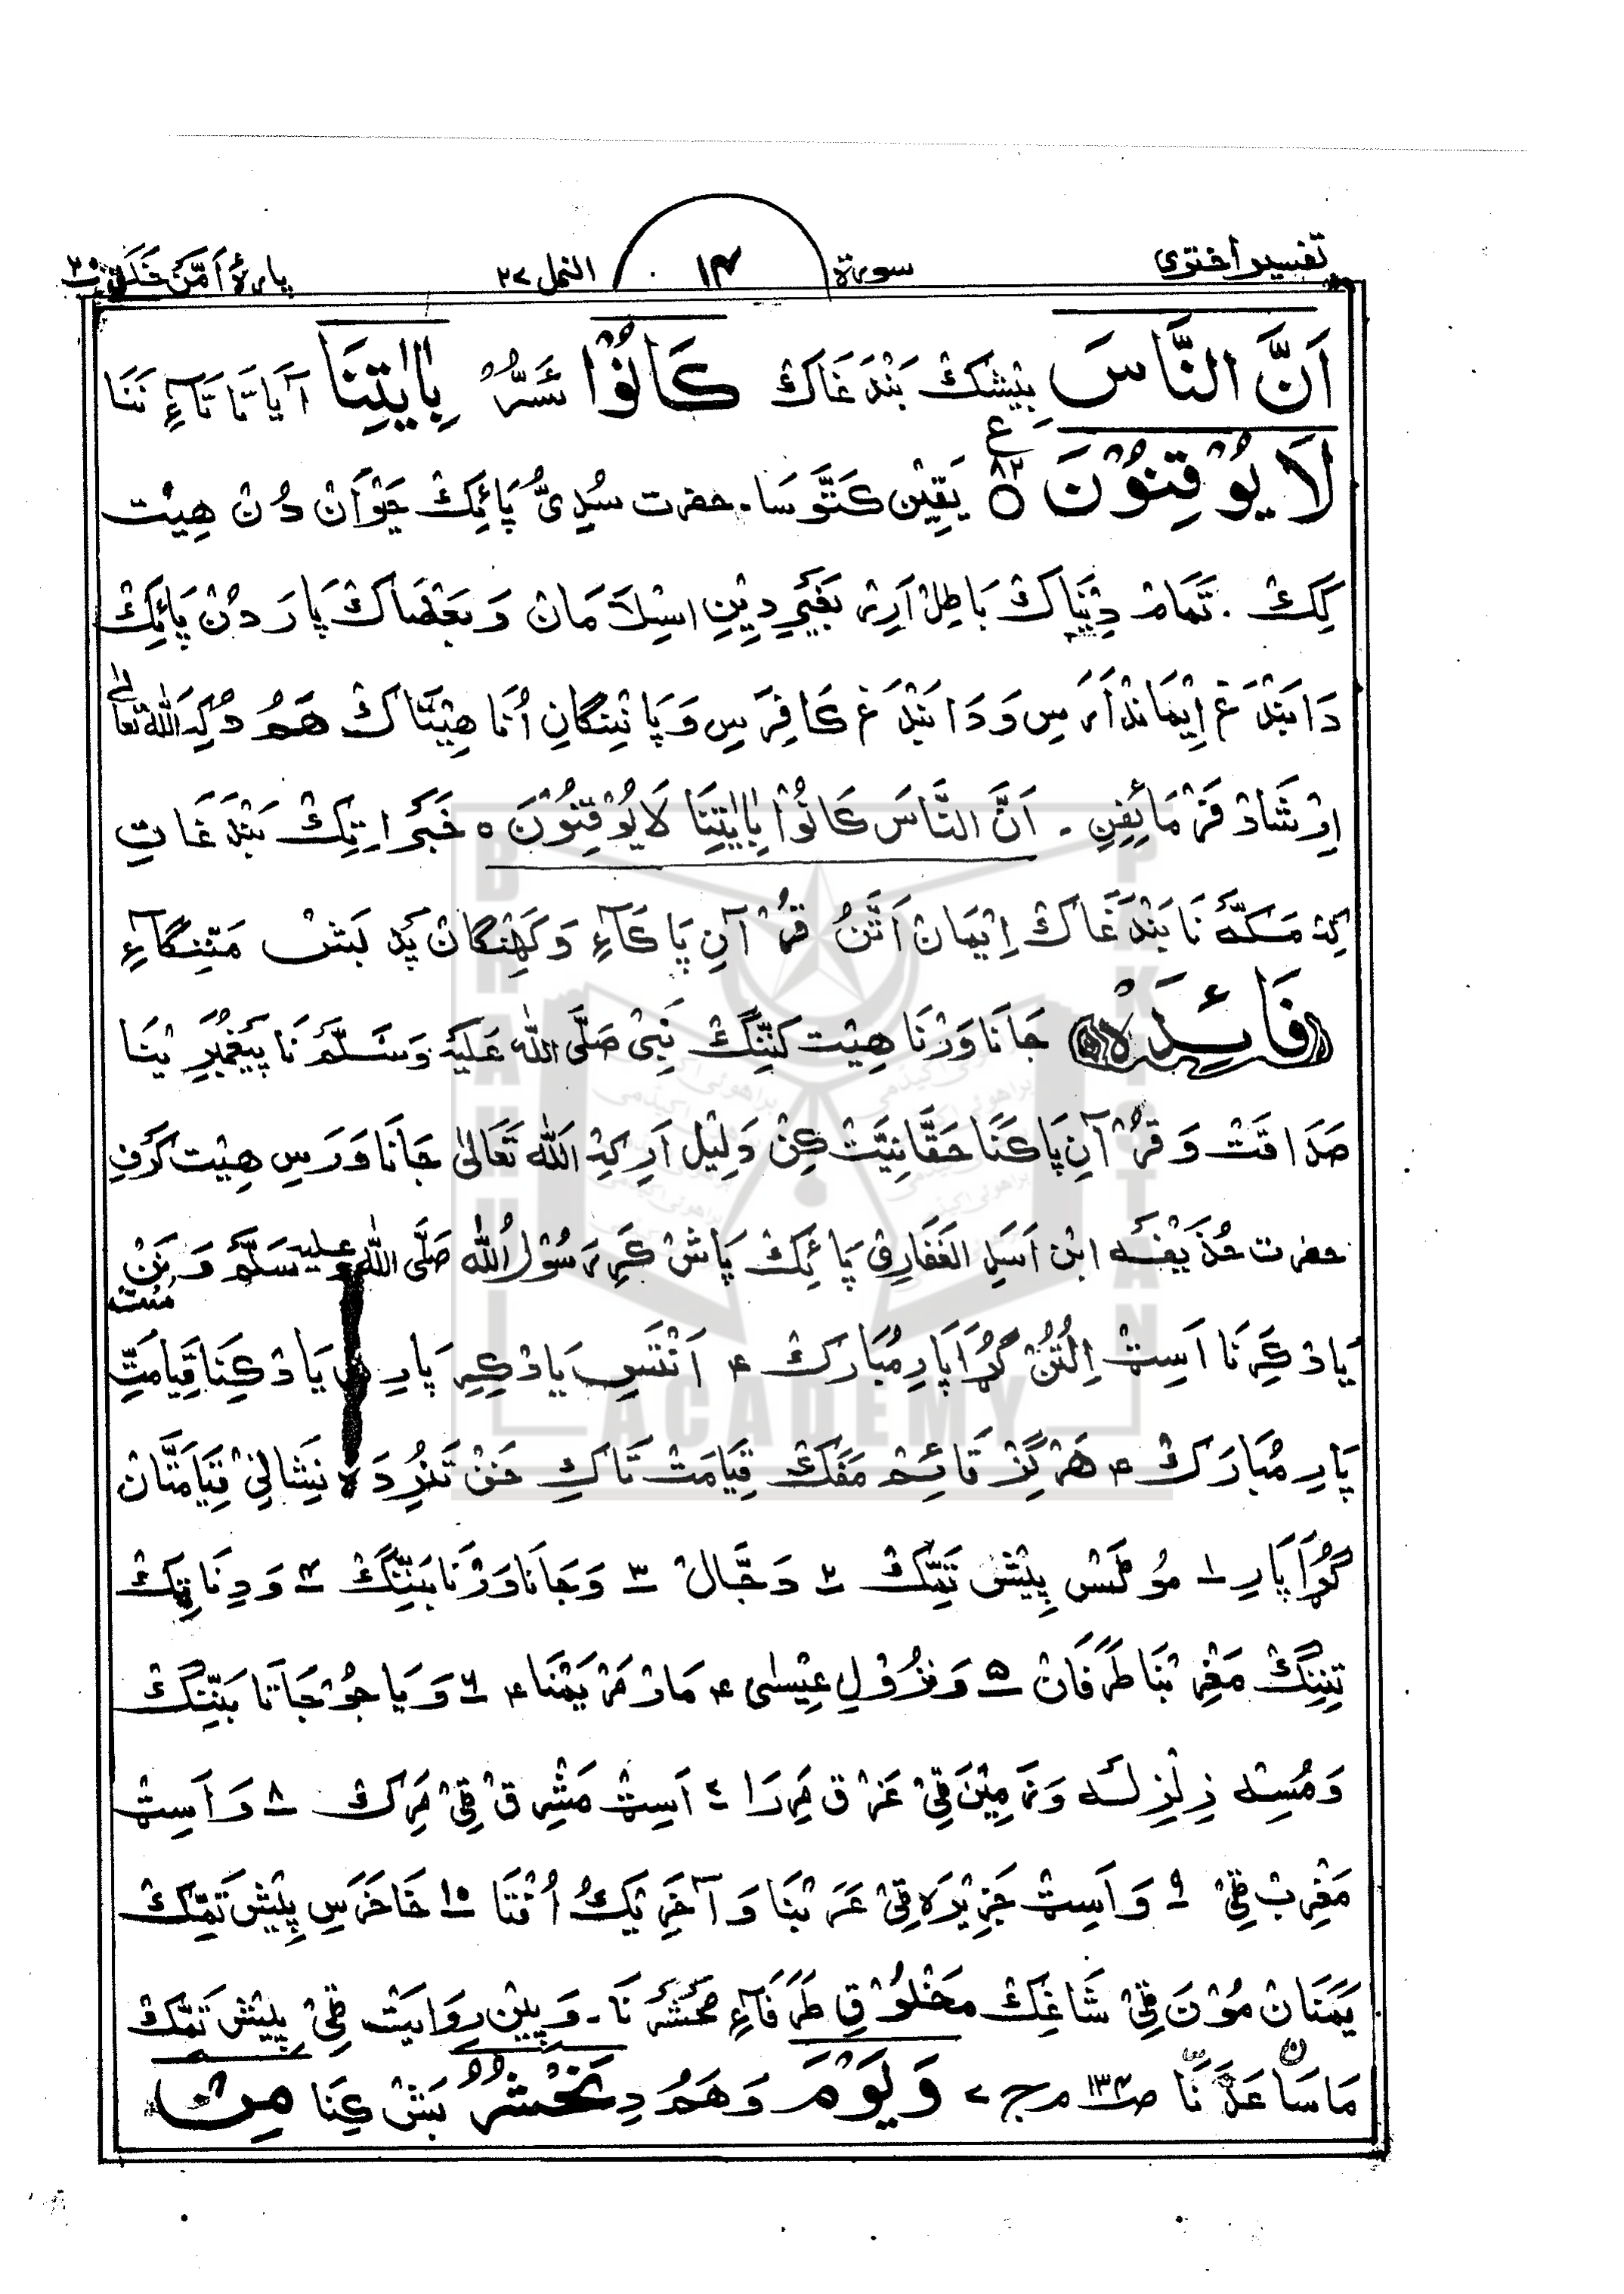 تفسیر اختری سورة ۱۴ النمل ۲۷ پارۂ اَمَّنْ خَلَقَ ۲۰
اَنَّ النَّاسَ بِیْشک بَنْدَغَاکْ کَانُوْا ئَسُّرْ بِاٰیٰتِنَا آیَاتَاتَآءِ نَنَا
لَا یُوْقِنُوْنَ ۝۸۲ ع یَقِیْن کَتَّوَسَا۔ حضرت سُدِیُّ پَائِکْ جَوَْانْ دُنْ ھِیْت
کِکْ۔ تَمَامْ دِیْنَاکْ بَاطِلْ اَرِرْ بَغَیْرِ دِیْنِ اسْلَامَانْ وَ بَعْضَاکْ پَارَ دُنْ پَائِکْ
دَا بَنْدَغْ اِیْمَانْدَارَسِ وَ دَا بَنْدَغْ کَافِرَسِ وَ پَانِنْگانِ اُنَا ھِیْتَاکْ ھَمُ دُکِہ اَللّٰہُ تَعَالٰے
اِرْشَادْ فَرْمَائِفِنِ۔ اَنَّ النَّاسَ کَانُوْا بِاٰیٰتِنَا لَا یُوْقِنُوْنَ ۝ خَبَر اِتِکْ بَنْدَغَاتِ
کِہ مَکَّہ نَا بَنْدَغَاکْ اِیْمَانْ اَتَنُ قُرْآنِ پَاکَآءِ وَ کَھِنْگانْ پَدْ بَشْ مَتِنِگآءِ
فَائِدَہْ جَانَاوَرْنَا ھِیْت کَنِّنْگ نَبِیْ صَلَّی اللّٰہُ عَلَیْہِ وَسَلَّمْ نَا پَیْغَمْبَرِیْنَا
صَدَاقَتْ وَ قُرْآنِ پَاکَنَا حَقَّانِیَّتْ کِنْ دَلِیْل اَرِ کِہْ اَللّٰہ تَعَالٰی جَانَاوَرَسِ ھِیْت کَرَفِ
حضرت حُذَیْفَہ ابْن اَسَیدِ الغَفَارِی پَائِکْ پَاشْ کَرِ رَسُوْلُ اللّٰہ صَلَّی اللّٰہُ عَلَیْہِ وَسَلَّمْ وَ نَنْ
یَادْ کَرِنَا اَسِٹ اِلْتُنْ گُڑَا پَارِ مُبَارَکْ ؑ اَنْتَسِ یَادْ کِرِ پَارِ یَادْ کِنَا قِیَامَتِّ
پَارِ مُبَارَکْ ؑ ھَرْگِزْ قَائِمْ مَفَکْ قِیَامَتْ تَاکِہ خَنْ تَنُرِ دَہ نِشَانِیْ قِیَامَتَّانْ
گُڑَا پَارِ ۱ مُوْکَسْ پِیْشْ تَمِّکْ ۲ دَجَّالْ ۳ وَجَانَاوَرْنَا بَنِّنْگْ ۴ وَ دِنَا تِکْ
تِنِنْگْ مَغْرِبْنَا طَرَفَانْ ۵ وَ نُزُوْلِ عِیْسٰی ؑ مَارْ مَرْیَمْنَا ؑ ۶ وَ یَاجُوْجَاتَا بَنِّنِگْ
وَ مُسِہ زِلْزِلَہ وَ زَمِیْنَ قِیْ غَرْق مَرَا ۷ اَسِٹ مَشْرِقْ قِیْ مَرَکْ ۸ وَ اَسِٹ
مَغْرِبْ قِیْ ۹ وَ اَسِٹ جَزِیْرَہ قِیْ عَرَبْنَا وَ آخَرِیْکُ اُفْتَا ۱۰ خَاخَرَسِ پِیْشْ تَمِّکْ
یَمَنَانْ مُوْنَ قِیْ شَاغِکْ مَخْلُوْقِ طَرَفَآءِ مَحْشَرْنَا۔ وَ پِیْن رِوَایَتْ قِیْ پِیْشْ تَمِّکْ
مَا سَاَ عَدَنْ نَا صـ۱۳۴ م ج ۷ وَیَوْمَ وَ ھَمُ دِ نَحْشُرُ بَشْ کِنَا مِنْ